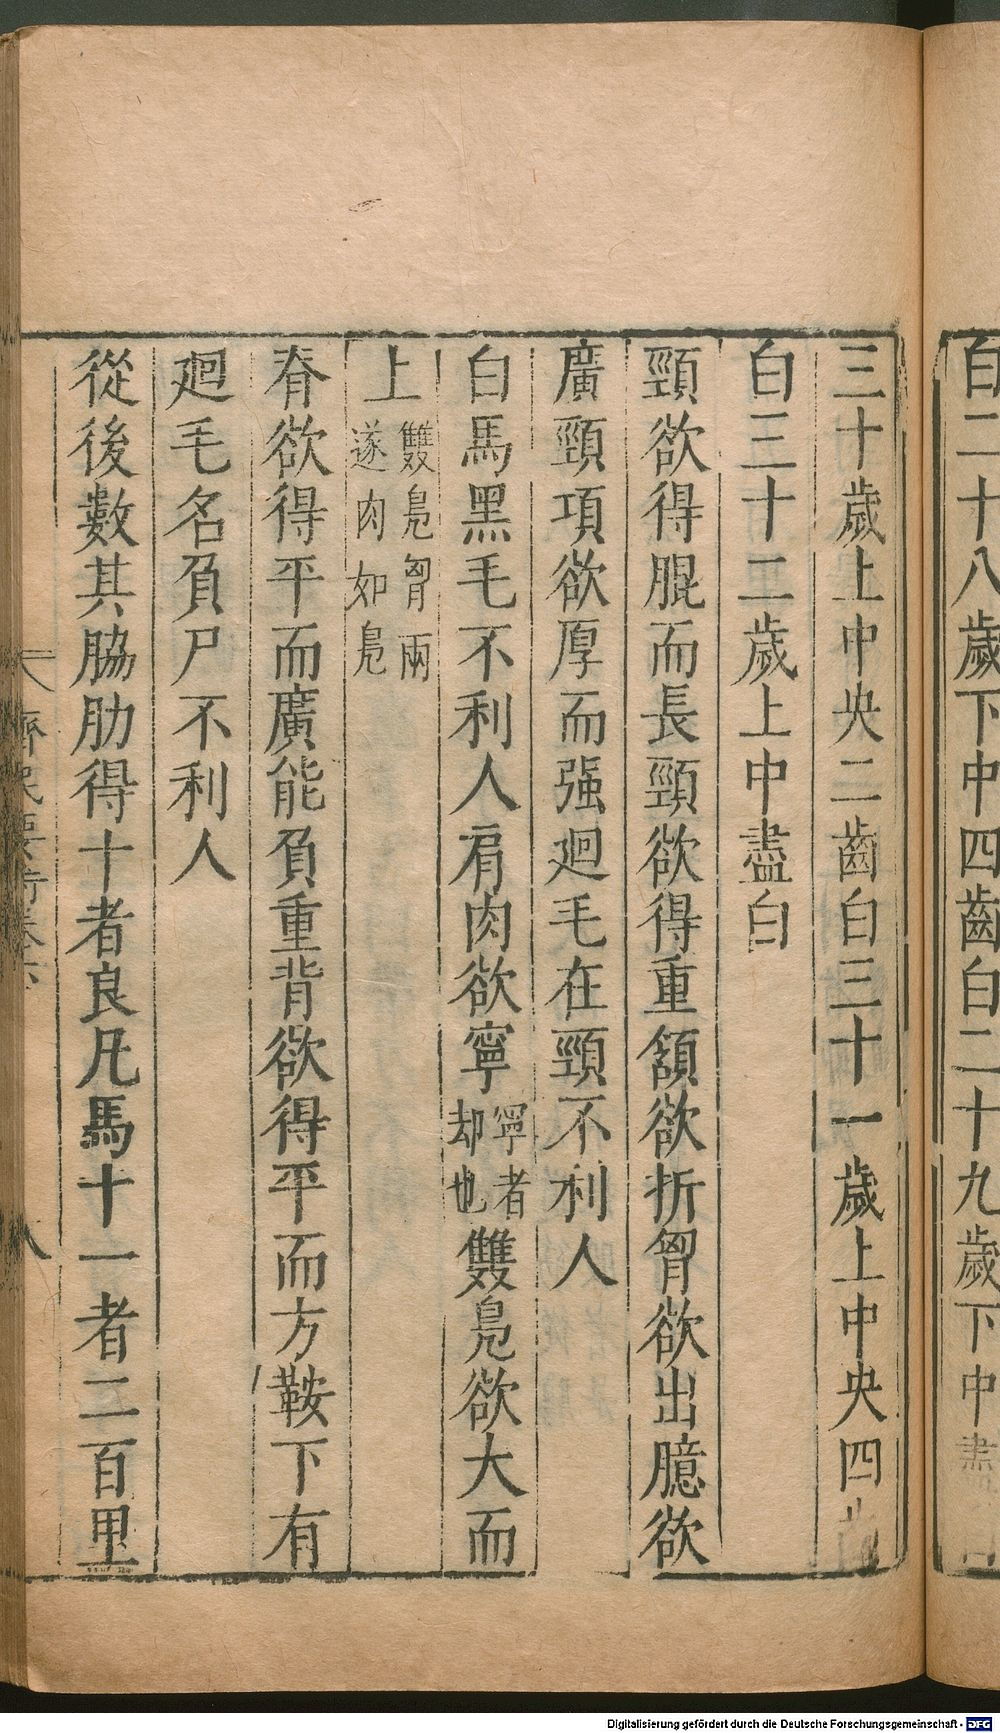 白二十八歲下中四齒白二十九歲下中盡白
三十歲上中央二齒白三十一歲上中央四齒
白三十二歲上中盡白
頸欲得䐊而長頸欲得重頷欲折胷欲出臆欲
廣頸項欲厚而强廻毛在頸不利人
白馬黑毛不利人肩肉欲寧寧者却也雙鳧欲大而
上雙鳧胷兩邊肉如鳧
脊欲得平而廣能負重背欲得平而方鞍下有
廻毛名負尸不利人
從後數其脇肋得十者良凡馬十一者二百里
齊民要術卷六
八
Digitalisierung gefördert durch die Deutsche Forschungsgemeinschaft - DFG